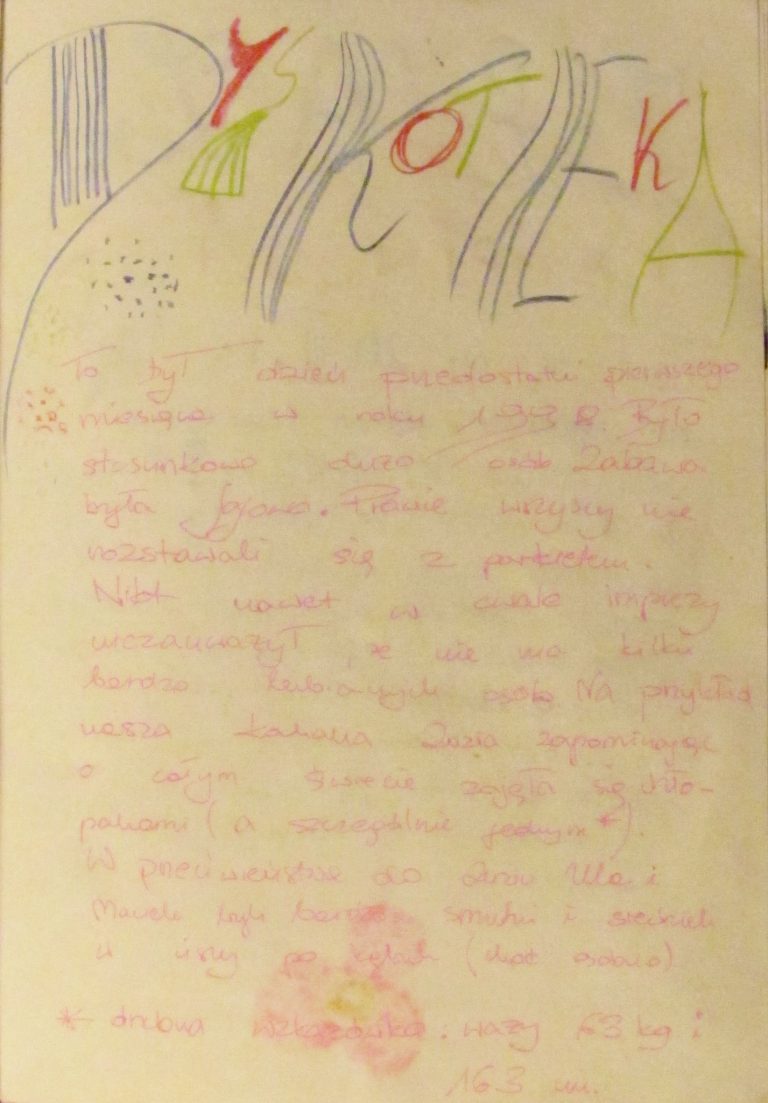 DYSKOTEKA
To był dzień przedostatni pierwszego
miesiąca w roku 1998. Było
stosunkowo dużo osób. Zabawa
była fajowa. Prawie wszyscy nie
rozstawali się z parkietem.
Nikt nawet w czasie imprezy
niezauważył, że nie ma kilku
bardzo lubianych osób. Na przykład
nasza kochana Zuzia zapominając
o całym świecie zajęła się chło-
pakami (a szczególnie jednym*).
W przeciwieństwie do Zuzi Ula i
Maciek byli bardzo smutni i siedzieli
po kątach (choć osobno)
* drobna wskazówka: waży 63 kg i
163 cm.